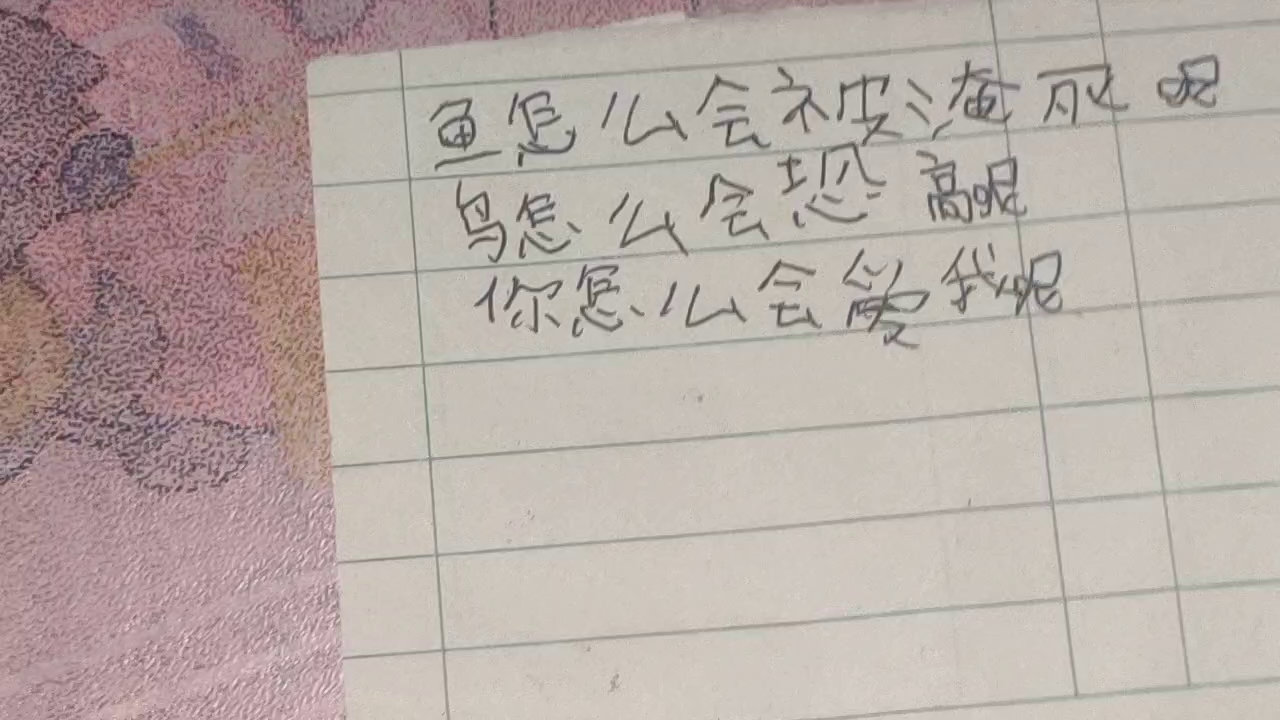 鱼怎么会被淹死呢
鸟怎么会恐高呢
你怎么会爱我呢